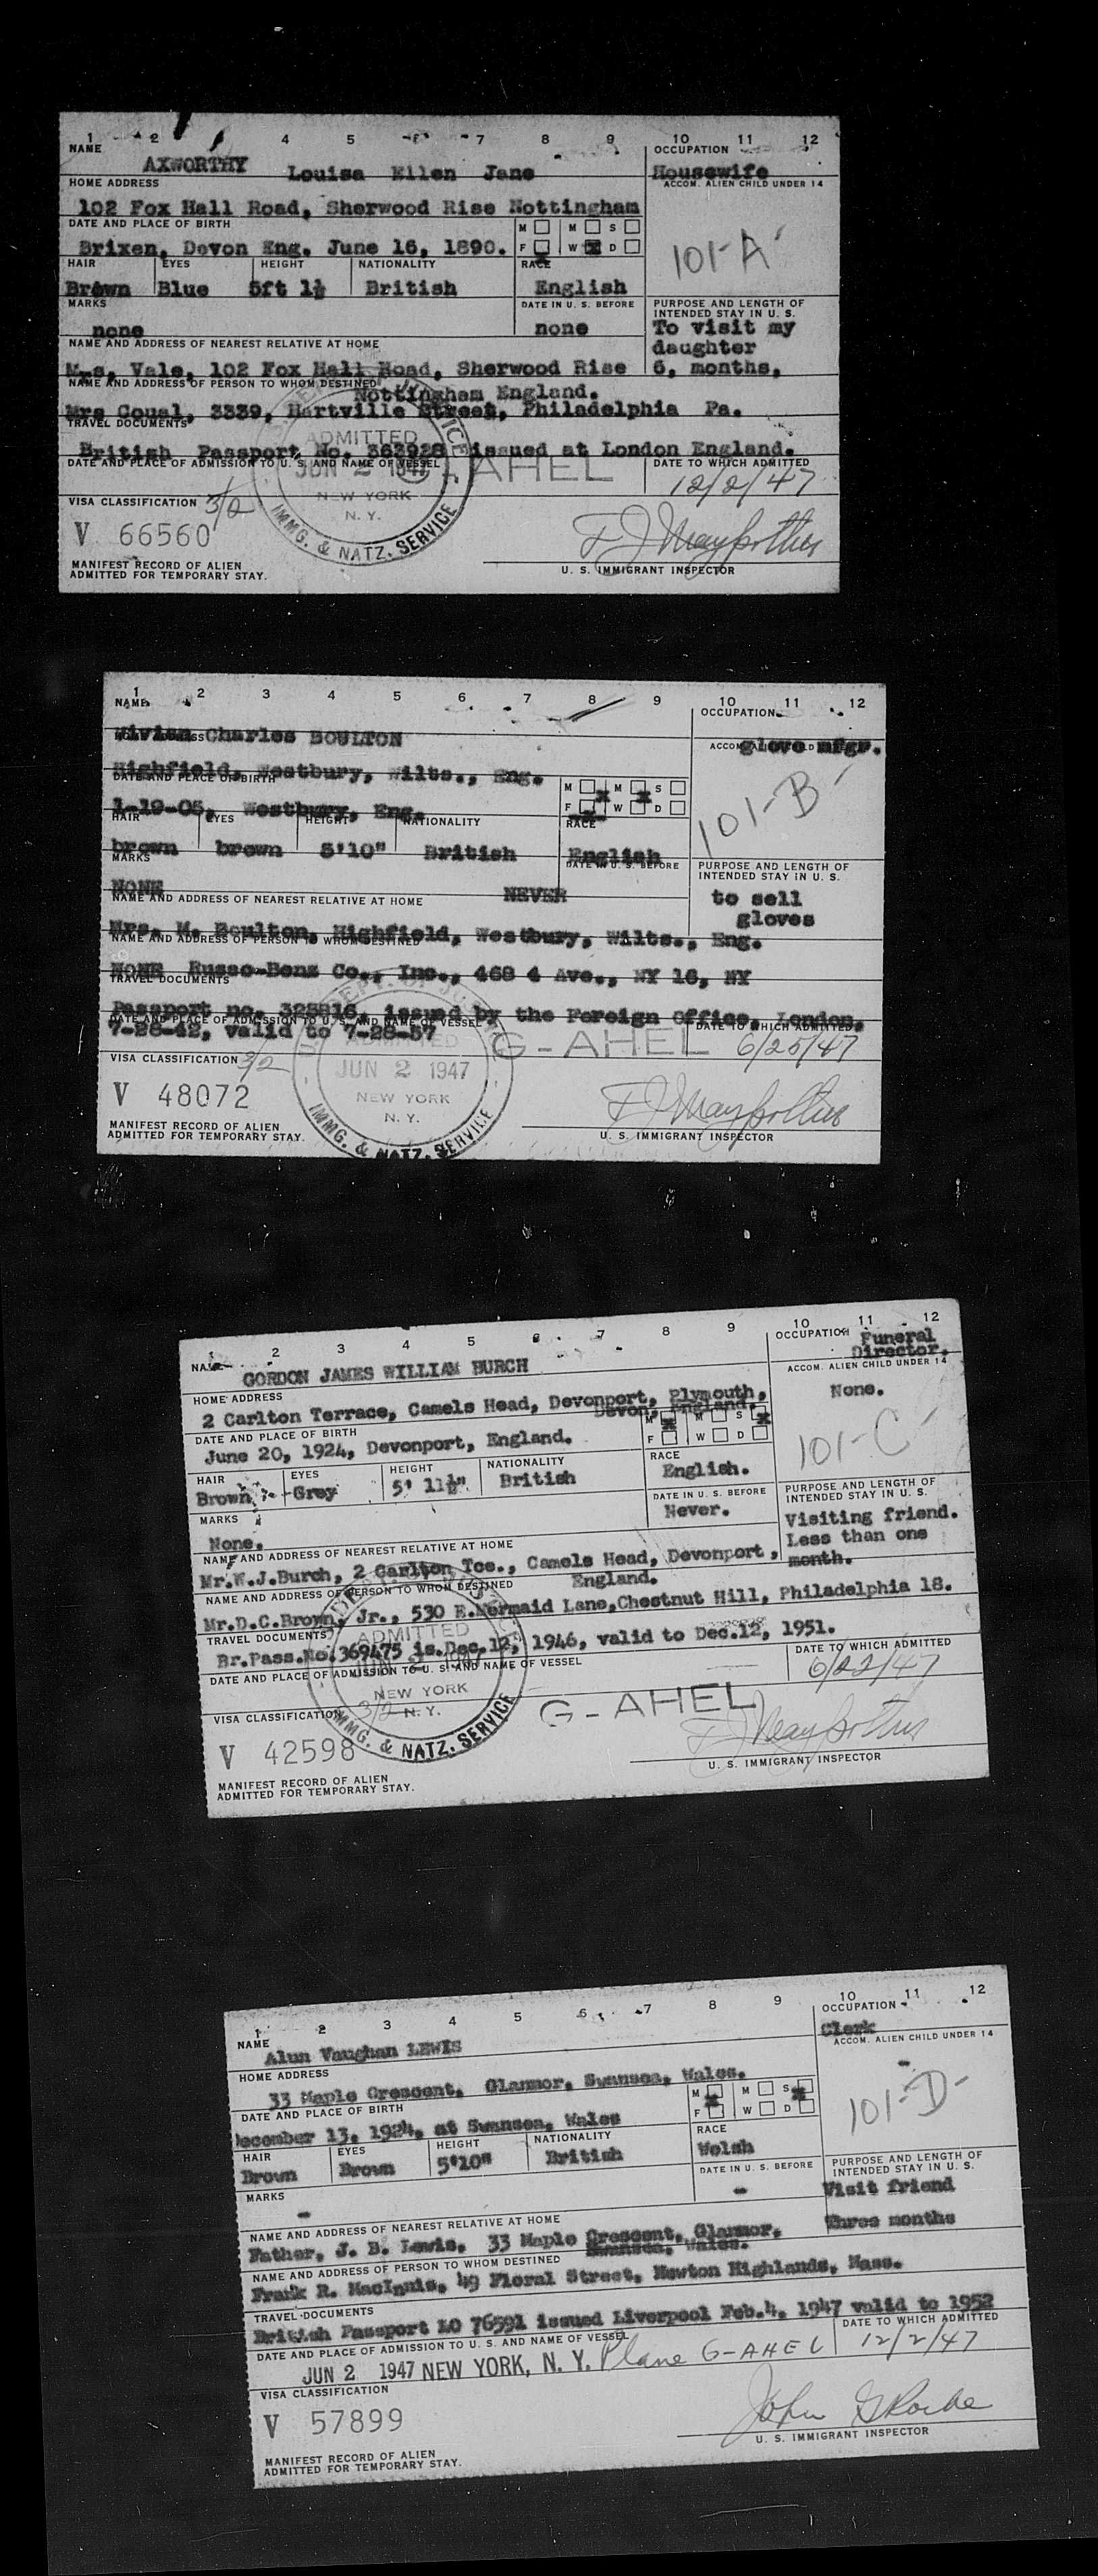 1 2 4 5 6 7 8 9 10 11 12
NAME OCCUPATION
AXWORTHY Louisa Ellen Jane Housewife
HOME ADDRESS ACCOM. ALIEN CHILD UNDER 14
102 Fox Hall Road, Sherwood Rise Nottingham
DATE AND PLACE OF BIRTH M M S
Brixen, Devon Eng. June 16, 1890. F W D
101-A
HAIR EYES HEIGHT NATIONALITY RACE
Brown Blue 5ft 1½ British English
MARKS DATE IN U. S. BEFORE PURPOSE AND LENGTH OF
INTENDED STAY IN U. S.
none none To visit my
daughter
NAME AND ADDRESS OF NEAREST RELATIVE AT HOME
Mrs. Vale, 102 Fox Hall Road, Sherwood Rise 6, months,
NAME AND ADDRESS OF PERSON TO WHOM DESTINED
Nottingham England.
Mrs Coual, 3339, Hartville Street, Philadelphia Pa.
TRAVEL DOCUMENTS
British Passport No. 363928 issued at London England.
DATE AND PLACE OF ADMISSION TO U. S. AND NAME OF VESSEL DATE TO WHICH ADMITTED
ADMITTED
JUN 2 1947
NEW YORK
N. Y.
IMMG. & NATZ. SERVICE
G-AHEL
12/2/47
VISA CLASSIFICATION 3/2
V 66560
MANIFEST RECORD OF ALIEN
ADMITTED FOR TEMPORARY STAY.
U. S. IMMIGRANT INSPECTOR
1 2 3 4 5 6 7 8 9 10 11 12
NAME OCCUPATION
Vivian Charles BOULTON glove mfgr.
Highfield, Westbury, Wilts., Eng.
DATE AND PLACE OF BIRTH M M S
1-19-05, Westbury, Eng. F W D
101-B
HAIR EYES HEIGHT NATIONALITY RACE
brown brown 5'10" British English
MARKS DATE IN U. S. BEFORE PURPOSE AND LENGTH OF
INTENDED STAY IN U. S.
NONE NEVER to sell
gloves
NAME AND ADDRESS OF NEAREST RELATIVE AT HOME
Mrs. M. Boulton, Highfield, Westbury, Wilts., Eng.
NAME AND ADDRESS OF PERSON TO WHOM DESTINED
NONE Russo-Benz Co., Inc., 468 4 Ave., NY 16, NY
TRAVEL DOCUMENTS
Passport no. 325816, issued by the Foreign Office, London,
DATE AND PLACE OF ADMISSION TO U. S. AND NAME OF VESSEL DATE TO WHICH ADMITTED
7-28-42, valid to 7-28-57
G-AHEL 6/25/47
JUN 2 1947
NEW YORK
N. Y.
IMMG. & NATZ. SERVICE
VISA CLASSIFICATION 3/2
V 48072
MANIFEST RECORD OF ALIEN
ADMITTED FOR TEMPORARY STAY.
U. S. IMMIGRANT INSPECTOR
1 2 3 4 5 6 7 8 9 10 11 12
NAME OCCUPATION Funeral
Director.
GORDON JAMES WILLIAM BURCH
HOME ADDRESS ACCOM. ALIEN CHILD UNDER 14
2 Carlton Terrace, Camels Head, Devonport, Plymouth, None.
Devon, England.
DATE AND PLACE OF BIRTH M M S
June 20, 1924, Devonport, England. F W D
101-C
HAIR EYES HEIGHT NATIONALITY RACE
Brown Grey 5' 11½" British English.
MARKS DATE IN U. S. BEFORE PURPOSE AND LENGTH OF
INTENDED STAY IN U. S.
None. Never. Visiting friend.
Less than one
month.
NAME AND ADDRESS OF NEAREST RELATIVE AT HOME
Mr.W.J.Burch, 2 Carlton Tce., Camels Head, Devonport,
England.
NAME AND ADDRESS OF PERSON TO WHOM DESTINED
Mr.D.C.Brown, Jr., 530 E.Mermaid Lane,Chestnut Hill, Philadelphia 18.
TRAVEL DOCUMENTS
Br.Pass.No.369475 is.Dec.12, 1946, valid to Dec.12, 1951.
DATE AND PLACE OF ADMISSION TO U. S. AND NAME OF VESSEL DATE TO WHICH ADMITTED
6/22/47
ADMITTED
NEW YORK
N. Y.
IMMG. & NATZ. SERVICE
G-AHEL
VISA CLASSIFICATION 3/2
V 42598
MANIFEST RECORD OF ALIEN
ADMITTED FOR TEMPORARY STAY.
U. S. IMMIGRANT INSPECTOR
1 2 3 4 5 6 7 8 9 10 11 12
NAME OCCUPATION
Alun Vaughan LEWIS Clerk
HOME ADDRESS ACCOM. ALIEN CHILD UNDER 14
33 Maple Crescent, Glanmor, Swansea, Wales.
DATE AND PLACE OF BIRTH M M S
December 13, 1924, at Swansea, Wales F W D
101-D-
HAIR EYES HEIGHT NATIONALITY RACE
Brown Brown 5'10" British Welsh
MARKS DATE IN U. S. BEFORE PURPOSE AND LENGTH OF
INTENDED STAY IN U. S.
- - Visit friend
Three months
NAME AND ADDRESS OF NEAREST RELATIVE AT HOME
Father, J. B. Lewis, 33 Maple Crescent, Glanmor,
Swansea, Wales.
NAME AND ADDRESS OF PERSON TO WHOM DESTINED
Frank R. MacInnis, 49 Floral Street, Newton Highlands, Mass.
TRAVEL DOCUMENTS
British Passport LO 76591 issued Liverpool Feb.4, 1947 valid to 1952
DATE AND PLACE OF ADMISSION TO U. S. AND NAME OF VESSEL DATE TO WHICH ADMITTED
JUN 2 1947 NEW YORK, N. Y. Plane G-AHEL 12/2/47
VISA CLASSIFICATION
V 57899
MANIFEST RECORD OF ALIEN
ADMITTED FOR TEMPORARY STAY.
U. S. IMMIGRANT INSPECTOR